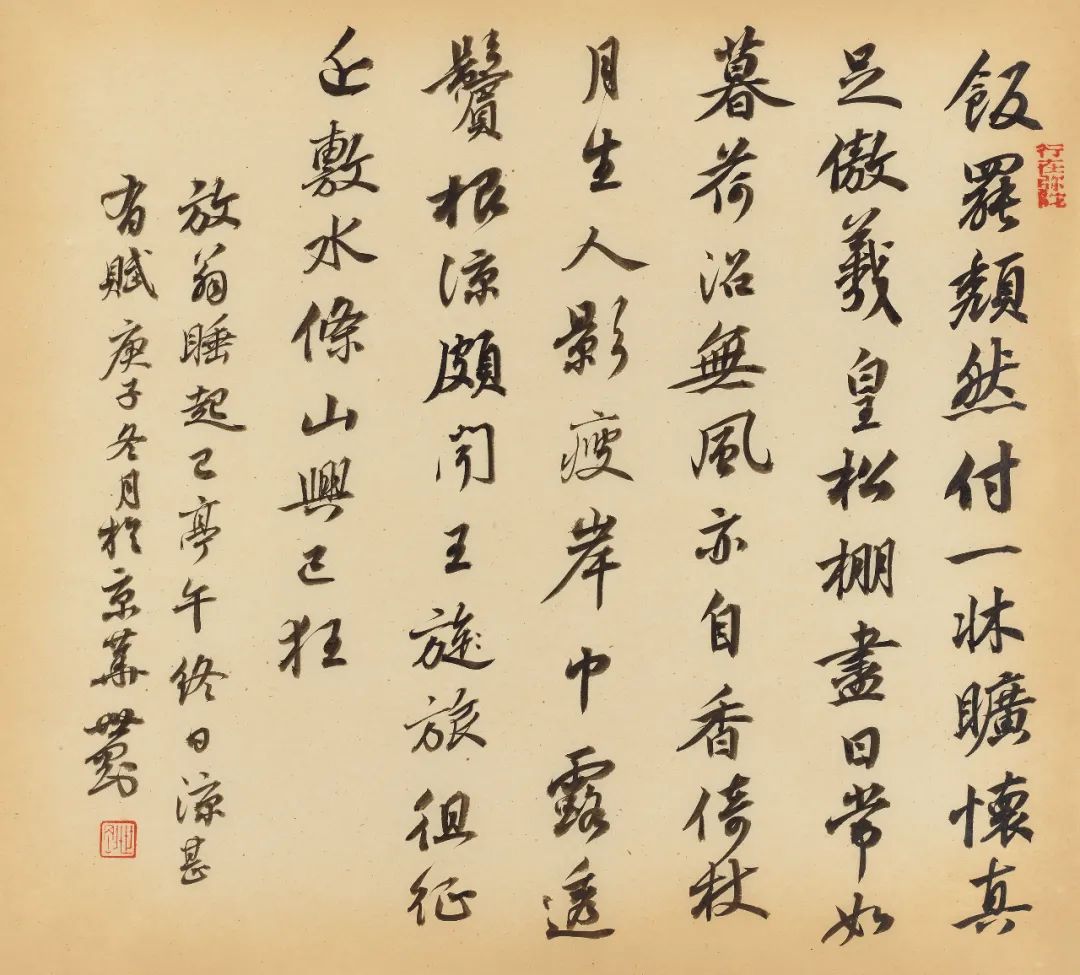 行在弥陀
飯罷頹然付一牀曠懷真
足傲羲皇松棚盡日常如
暮荷沼無風亦自香倚杖
月生人影瘦岸巾露透
鬢根涼頗聞王旋旅徂征
近敷水條山興已狂
放翁睡起已亭午終日涼甚
有賦庚子冬月於京華世